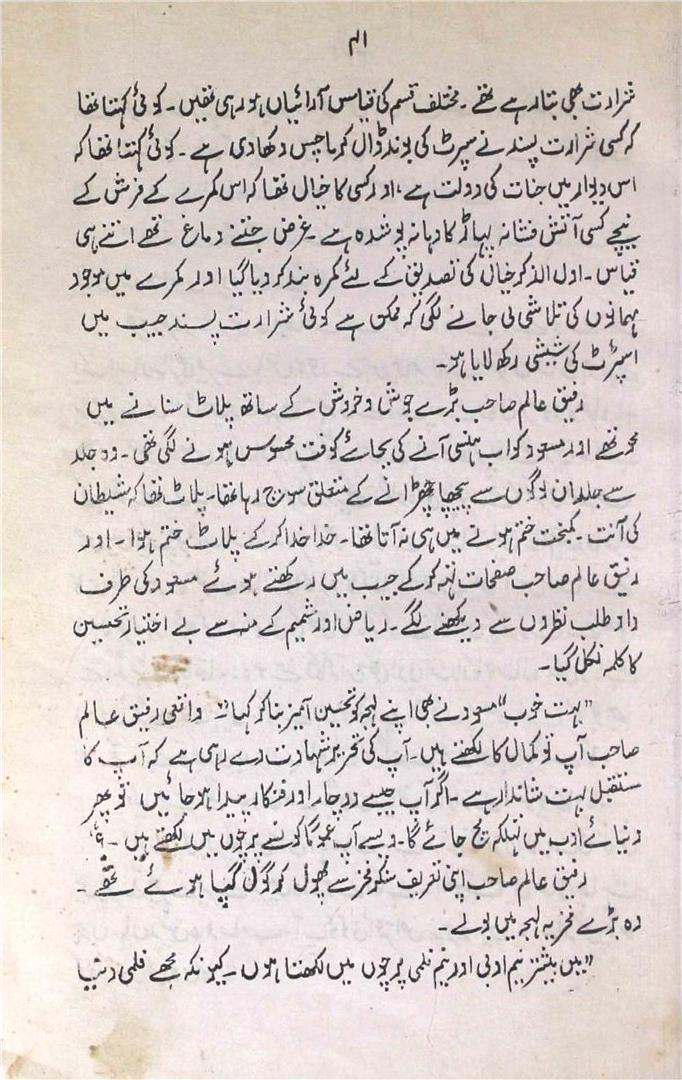 ۴۱
شرارت بھی بتا رہے تھے ۔ مختلف قسم کی قیاس آرائیاں ہو رہی تھیں ۔ کوئی کہتا تھا
کہ کسی شرارت پسند نے سپرٹ کی بوند ڈال کر ماچس دکھا دی ہے ۔ کوئی کہتا تھا کہ
اس دیوار میں جنات کی دولت ہے ، اور کسی کا خیال تھا کہ اس کمرے کے فرش کے
نیچے کسی آتش فشانہ پہاڑ کا دہانہ پوشدہ ہے ۔ غرض جتنے دماغ تھے اتنے ہی
قیاس ۔ اول الذکر خیال کی تصدیق کے لئے کمرہ بند کر دیا گیا اور کمرے میں موجود
مہمانوں کی تلاشی لی جانے لگی کہ ممکن ہے کوئی شرارت پسند جیب میں
اسپرٹ کی شیشی رکھ لایا ہو ۔
رفیق عالم صاحب بڑے جوش و خروش کے ساتھ پلاٹ سنانے میں
محو تھے اور مسعود کو اب ہنسی آنے کی بجائے کوفت محسوس ہونے لگی تھی ۔ وہ جلد
سے جلد ان لوگوں سے پیچھا چھڑانے کے متعلق سوچ رہا تھا ۔ پلاٹ تھا کہ شیطان
کی آنت ۔ کمبخت ختم ہونے میں ہی نہ آتا تھا ۔ خدا خدا کر کے پلاٹ ختم ہوا ۔ اور
رفیق عالم صاحب صفحات تہہ کر کے جیب میں رکھتے ہوئے مسعود کی طرف
داد طلب نظروں سے دیکھنے لگے ۔ ریاض اور شمیم کے منہ سے بے اختیار تحسین
کا کلمہ نکل گیا ۔
"بہت خوب" مسعود نے بھی اپنے لہجہ کو تحسین آمیز بنا کر کہا "واقعی رفیق عالم
صاحب آپ تو کمال کا لکھتے ہیں ۔ آپ کی تحریر شہادت دے رہی ہے کہ آپ کا
مستقبل بہت شاندار ہے ۔ اگر آپ جیسے دو چار اور فنکار پیدا ہو جائیں تو پھر
دنیائے ادب میں تہلکہ مچ جائے گا ۔ ویسے آپ عموماً کونسے پرچوں میں لکھتے ہیں ۔ ؟"
رفیق عالم صاحب اپنی تعریف سنکر فخر سے پھول کر گول گپا ہوئے تھے ۔
وہ بڑے فخریہ لہجہ میں بولے ۔
"میں بیشتر نیم ادبی اور نیم فلمی پرچوں میں لکھتا ہوں ۔ کیونکہ مجھے فلمی دنیا